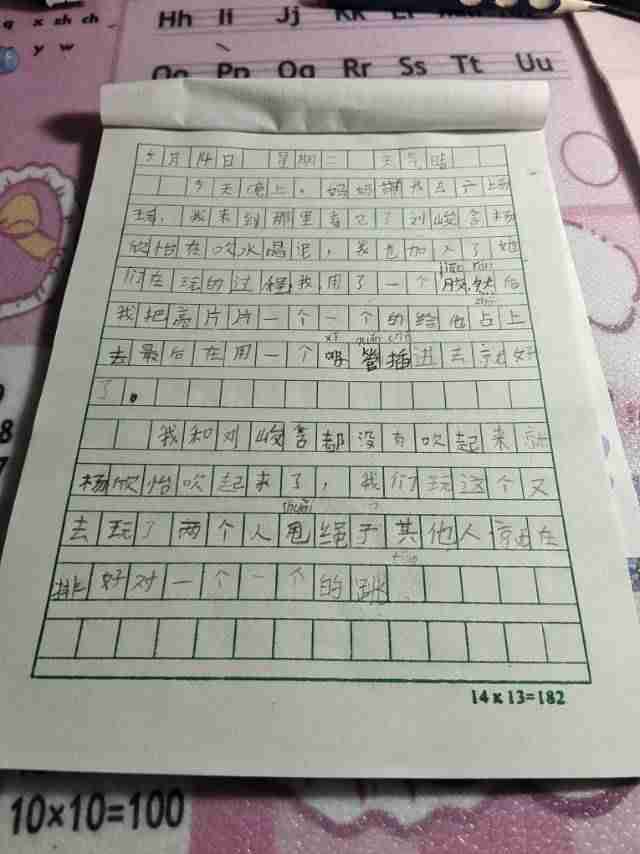 q x zh ch
y w
Hh Ii Jj Kk Ll
Oo Pp Qq Rr Ss Tt Uu
5月14日 星期二 天气晴
今天晚上,妈妈带我去广场
玩,我来到那里看见了刘峻含杨
欣怡在吹水晶泥,我也加入了她
们在玩的过程,我用了一个胶然后
我把亮片片一个一个的给他占上
去最后在用一个吸管插进去就好
了。
我和刘峻含都没有吹起来就
杨欣怡吹起来了,我们玩这个又
去玩了两个人甩绳子其他人就在
排好对一个一个的跳.
14x13=182
10×10=100